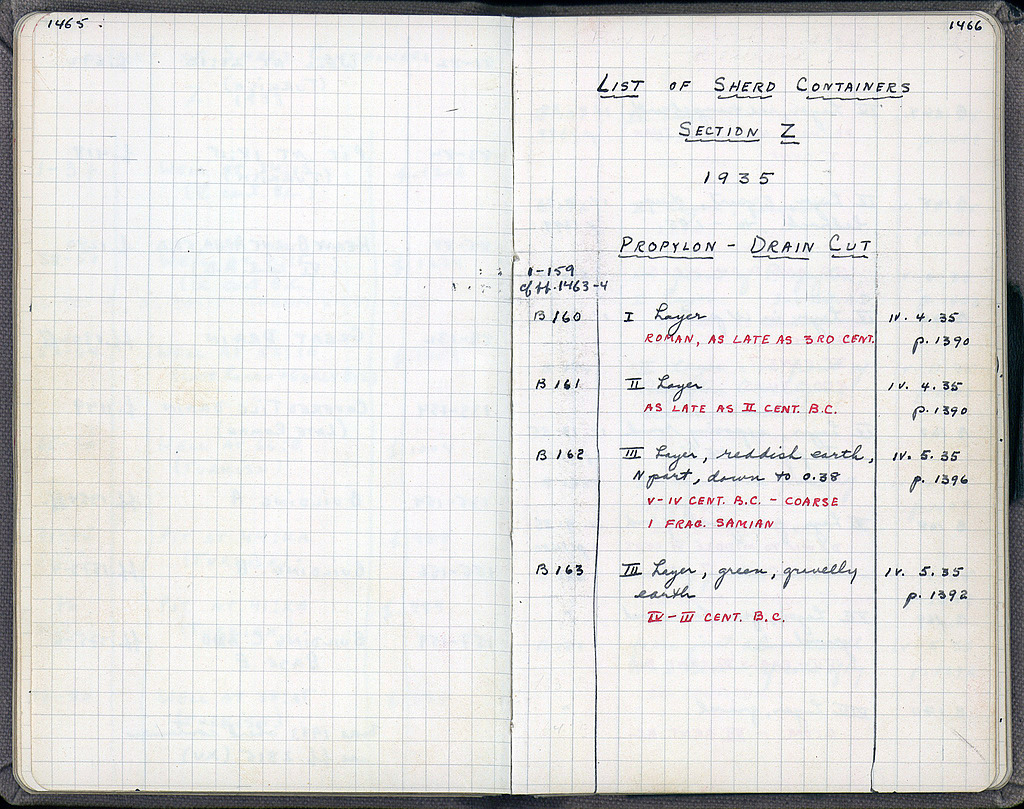 1465
1466
LIST OF SHERD CONTAINERS
SECTION Z
1935
PROPYLON - DRAIN CUT
1-159
cf pp. 1463-4
B 160 I Layer IV. 4. 35
ROMAN, AS LATE AS 3RD CENT. p. 1390
B 161 II Layer IV. 4. 35
AS LATE AS II CENT. B.C. p. 1390
B 162 III Layer, reddish earth, IV. 5. 35
N part, down to 0.38 p. 1396
V-IV CENT. B.C. - COARSE
1 FRAG. SAMIAN
B 163 III Layer, green, gravelly IV. 5. 35
earth p. 1392
IV-III CENT. B.C.